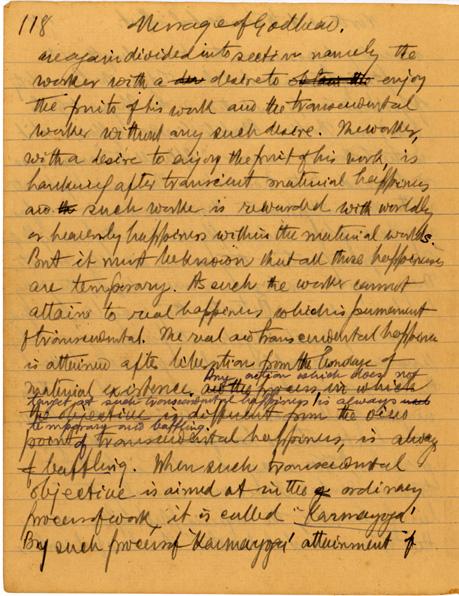 118 Message of Godhead.
are again divided into section namely the
worker with a desire to obtain the enjoy
the fruits of his work and the transcendental
worker without any such desire. The worker,
with a desire to enjoy the fruit of his work, is
hankering after transient material happiness
and such worker is rewarded with worldly
or heavenly happiness within the material worlds.
But it must be known that all these happinesses
are temporary. As such the worker cannot
attain to real happiness which is permanent
& transcendental. The real and transcendental happiness
is attained after liberation from the bondage of
Any action which does not
material existence. all the process in which
target at such transcendental happiness is always
the objective is different from the view
temporary and baffling.
point of transcendental happiness, is always
baffling. When such transcendental
objective is aimed at in the ordinary
process of work, it is called 'Karmayoga'
By such process of 'Karmayoga' attainment of